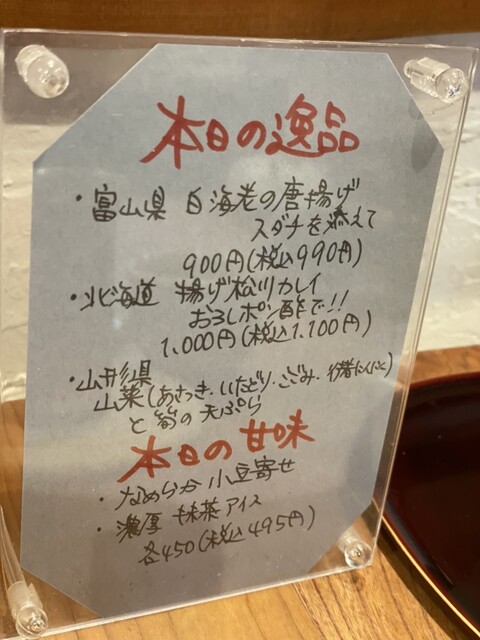 本日の逸品
・富山県 白海老の唐揚げ
スダチを添えて
900円(税込990円)
・北海道 揚げ松川カレイ
おろしポン酢で!!
1,000円(税込1,100円)
・山形県
山菜(あさつき・いたどり・こごみ・行者にんにく)
と筍の天ぷら
本日の甘味
・なめらか小豆寄せ
・濃厚 抹茶アイス
各450(税込495円)